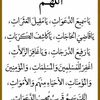 اللهم
يا مجيب الدعوات، يا مقيل العثرات
يا قاضي الحاجات، يا كاشف الكربات،
يا رفيع الدرجات، ويا غافر الزلات
اغفر للمسلمين والمسلمات، والمؤمنين
والمؤمنات، الأحياء منهم والأموات،
إنك سميع قريب مجيب الدعوات